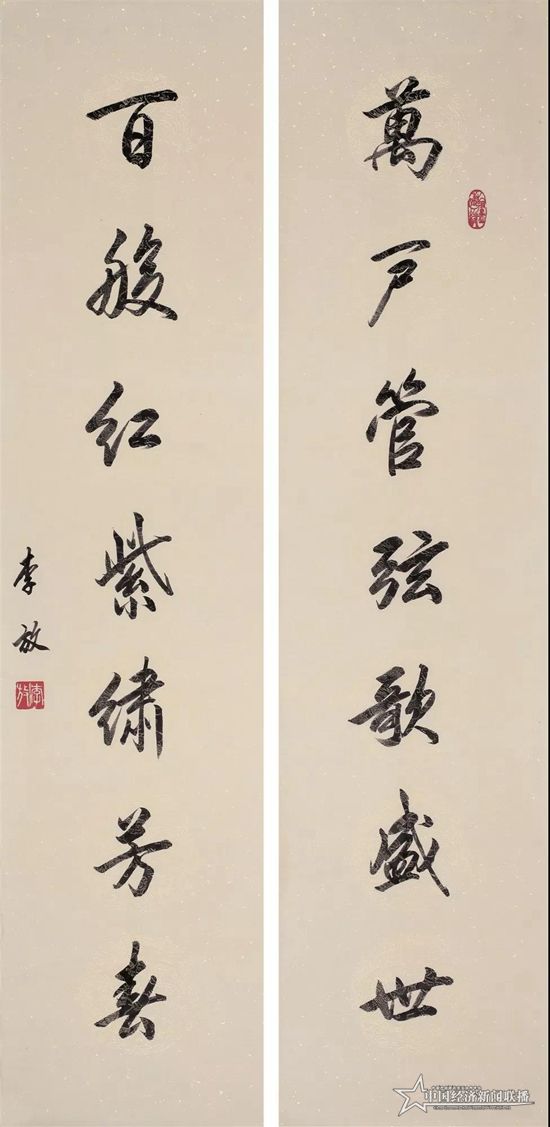 萬戶管弦歌盛世
百般红紫繡芳春
李放
李放
中国经济新闻联播